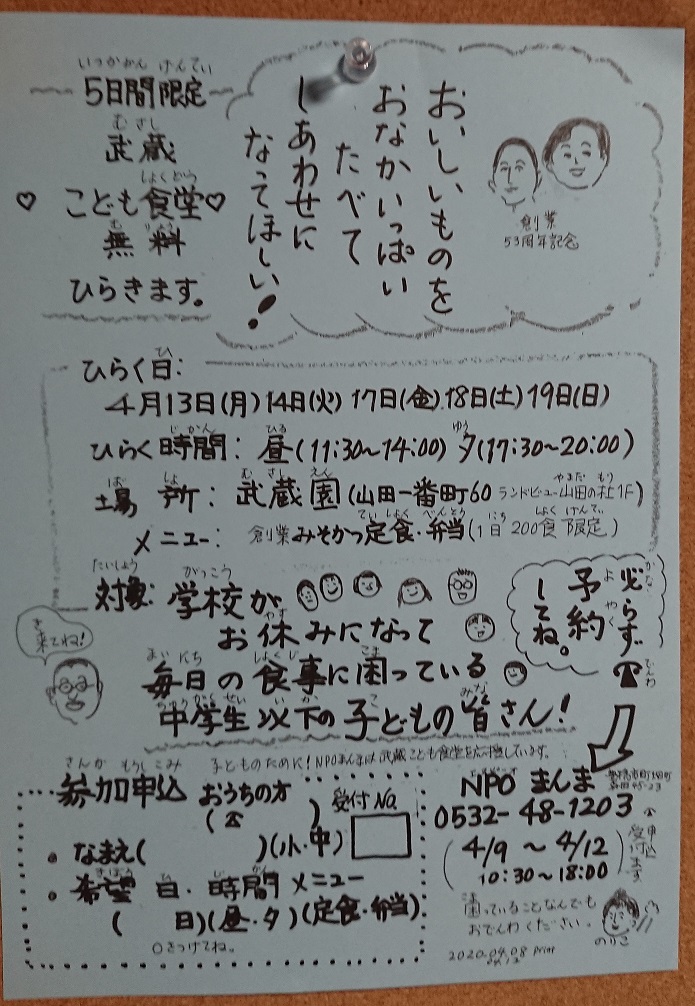 いつかかん げんてい
5日間限定
むさし
武蔵
しょくどう
♡ こども食堂♡
むりょう
無料
ひらきます。
おいしいものを
おなかいっぱい
たべて
しあわせに
なってほしい!
創業
53周年記念
ひ
ひらく日:
4月13日(月)14日(火)17日(金).18日(土)19日(日)
じかん ひる ゆう
ひらく時間: 昼(11:30~14:00) 夕(17:30~20:00)
ばしょ むさしえん やまだ もり
場所: 武蔵園(山田一番町60 ランドビュー山田の杜1F)
ていしょく べんとう にち しょく げんてい
メニュー: 創業みそかつ定食・弁当(1日200食限定)
たいしょう がっこう
対象: 学校が
やす
お休みになって
まいにち しょくじ こま
毎日の食事に困っている
ちゅうがくせい いか こ みな
中学生以下の子どもの皆さん!
かなら
必らず
よやく
予約
してね。
でんわ
☎
き
来てね!
子どものために!NPOまんまは武蔵こども食堂を応援しています。
さんか もうしこみ
参加申込 おうちの方
(☎ )
受付No.
・なまえ( )(小・中)
きぼう ひ じかん
・希望 日・時間 メニュー
( 日)(昼・夕)(定食・弁当)
○をつけてね。
NPO まんま
0532-48-1203
(4/9 ~ 4/12
10:30~18:00)
申込
受付ます
困っていることなんでも
おでんわください。
のりこ
2020.04.08 print
04.12